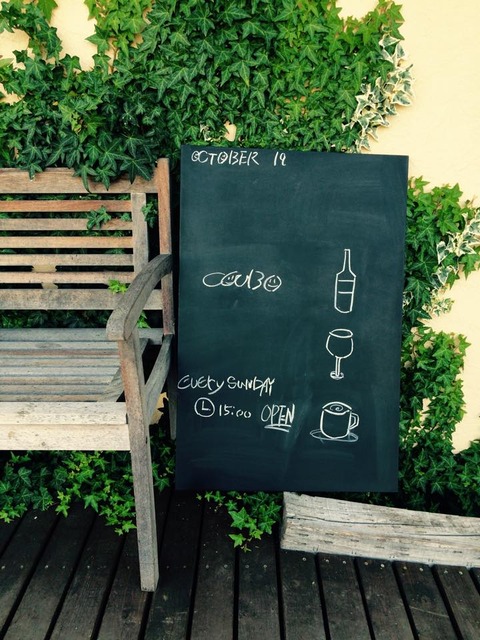 OCTOBER 19
COMBO
EVERY SUNDAY
15:00 OPEN